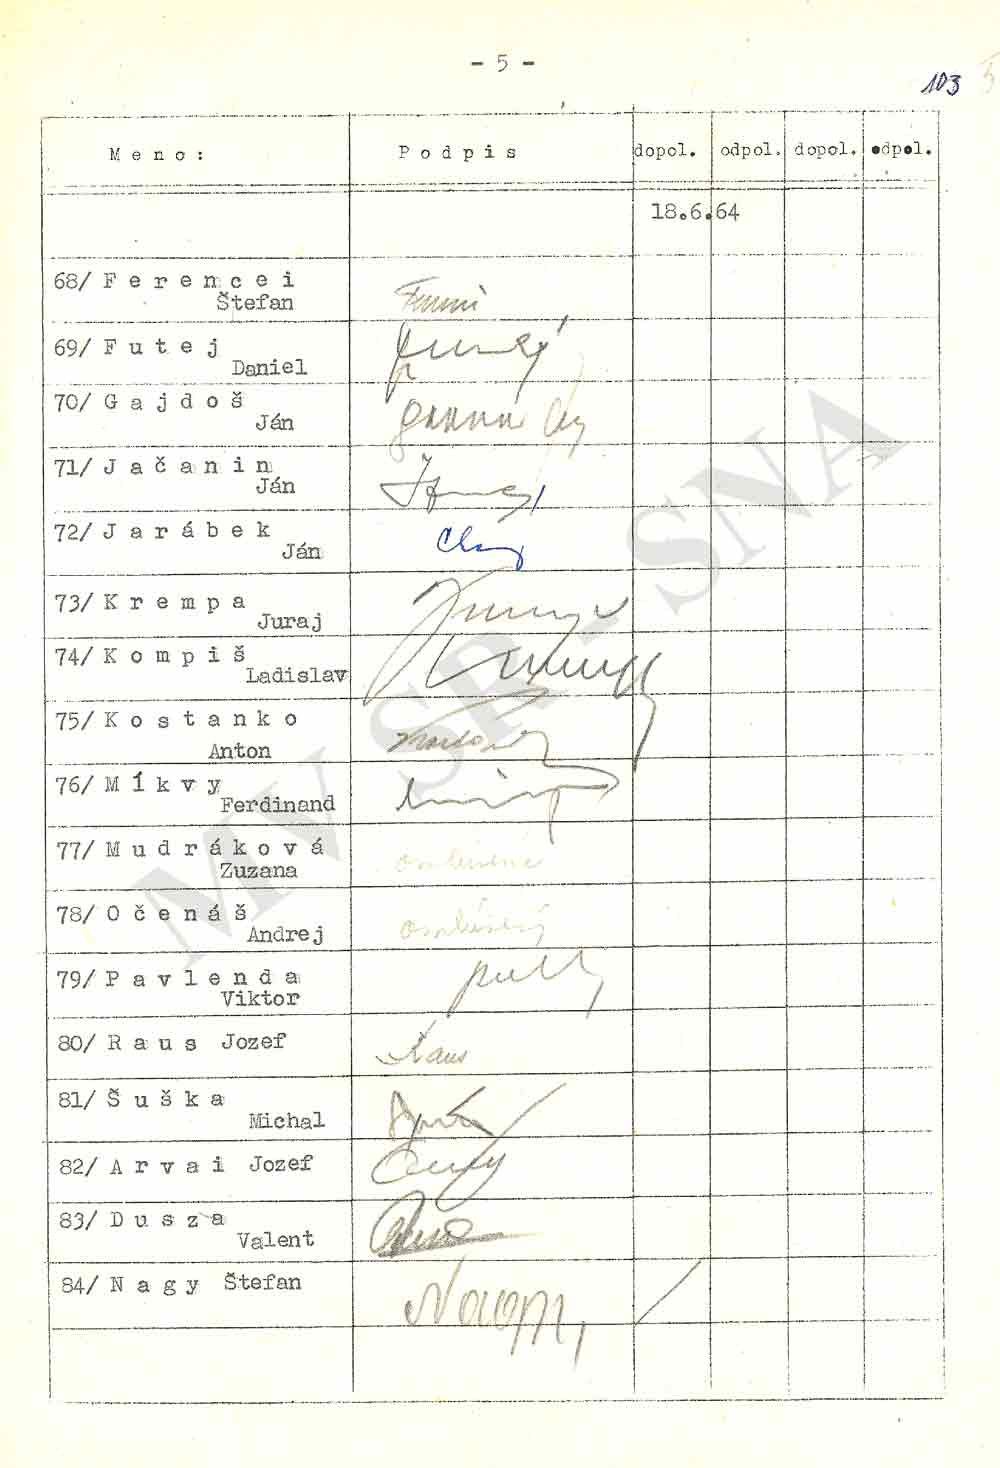 - 5 -
103
Meno: Podpis dopol. odpol. dopol. odpol.
18.6.64
68/ Ferencei
Štefan
69/ Futej
Daniel
70/ Gajdoš
Ján
71/ Jačanin
Ján
72/ Jarábek
Ján
73/ Krempa
Juraj
74/ Kompiš
Ladislav
75/ Kostanko
Anton
76/ Míkvy
Ferdinand
77/ Mudráková
Zuzana
78/ Očenáš
Andrej
79/ Pavlenda
Viktor
80/ Raus Jozef
Raus
81/ Šuška
Michal
82/ Arvai Jozef
83/ Dusza
Valent
84/ Nagy Štefan
MV SR - SNA